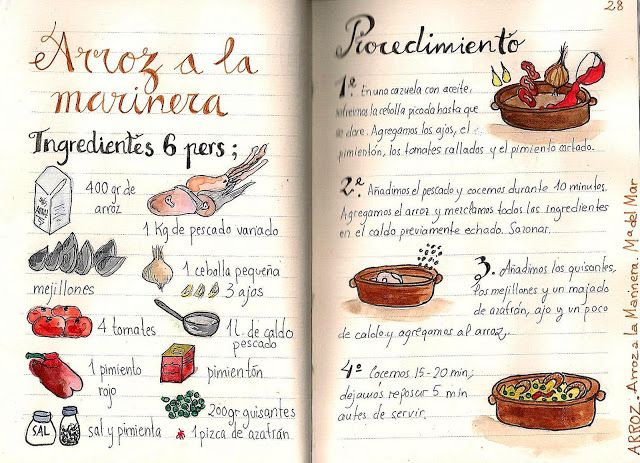 Arroz a la
marinera
Ingredientes 6 pers;
400 gr de
arroz
1 Kg de pescado variado
mejillones
1 cebolla pequeña
3 ajos
4 tomates
1 l. de caldo
pescado
1 pimiento
rojo
pimientón
200gr guisantes
SAL
sal y pimienta
1 pizca de azafrán
28
Procedimiento
1º. En una cazuela con aceite,
la cebolla picada hasta que
se dore. Agregamos los ajos, el
pimientón, los tomates rallados y el pimiento cortado.
2º. Añadimos el pescado y cocemos durante 10 minutos.
Agregamos el arroz y mezclamos todos los ingredientes
en el caldo previamente echado. Sazonar.
3. Añadimos los guisantes,
los mejillones y un majado
de azafrán, ajo y un poco
de caldo y agregamos al arroz.
4º Cocemos 15-20 min;
dejamos reposar 5 min
antes de servir.
ARROZ. Arroz a la Marinera. Ma del Mar